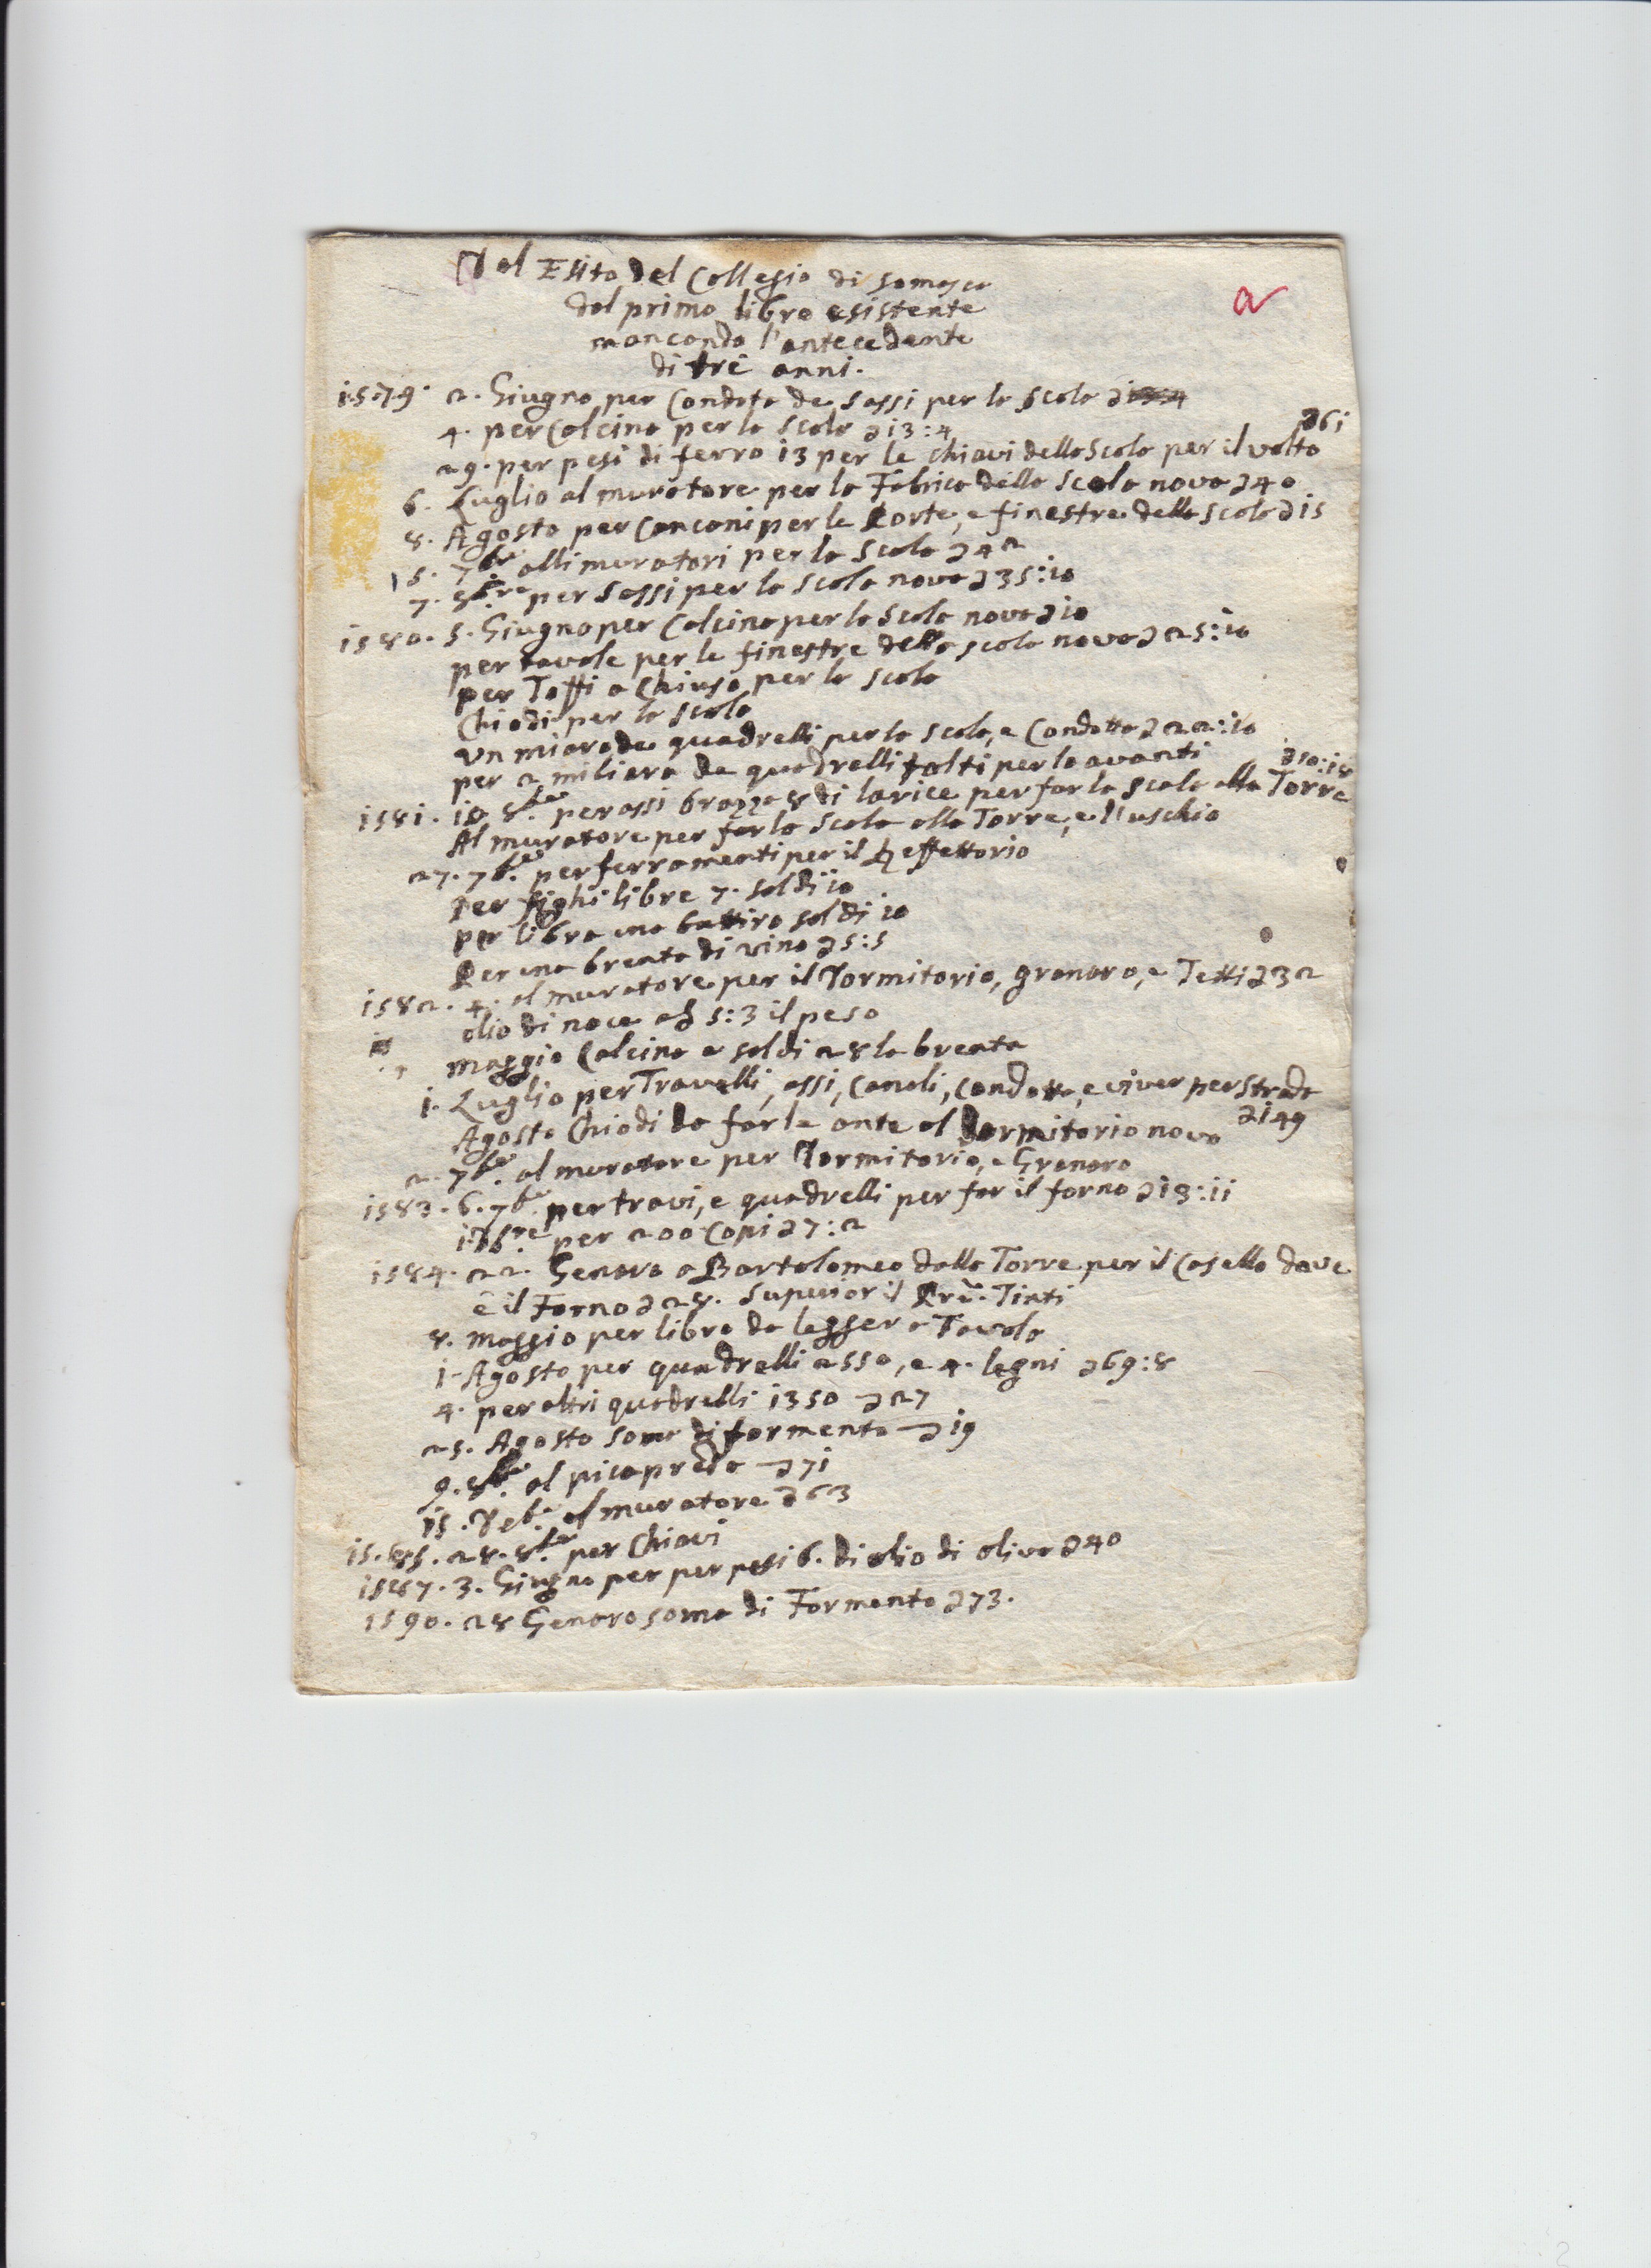 Dal Esito del Collegio di Somasca
dal primo libro esistente
mancando l'antecedente
di tre anni.
a
1579. 2. Giugno per Condota de sassi per la scola
4. per Calcina per la scola £ 13:4
£ 61
29. per pesi di ferro 13 per le chiavi della Scola per il volto
6. Luglio al muratore per la Fabrica della Scola nova £ 40
8. Agosto per Cancani per le Porte, e finestre della scola £ 15
5. 7bre alli muratori per la Scola £ 42
7. 8bre per Sassi per la scola nova £ 35:10
1580. 5. Giugno per Calcina per la Scola nova £ 10
per tavole per le finestre della scola nova £ 25:10
per Toffi a Chiuso per la scola
Chiodi per la scola
Un miaro de quadrelli per la scola, e Condotta £ 22:10
per 2 miliara de quadrelli tolti per lo avanti
£ 10:18
1581. 10 8bre per assi brazza 8 di larice per far la scala alla Torre
Al muratore per far la Scala alla Torre, e l'uschio
27. 7bre per ferramenti per il Reffettorio
Per fighi libre 7. soldi 10
per libra una battiro soldi 10
Per una brenta di vino £ 5:5
1582. 4. al muratore per il Dormitorio, granaro, e Tetti £ 32
olio di noce a £ 5:3 il peso
maggio Calcina a soldi 28 la brenta
1. Luglio per Travelli, assi, Canali, Condotta, e viver per strada
£ 149
Agosto Chiodi da far le ante al Dormitorio novo
2. 7bre al muratore per Dormitorio, e Granaro
1583. 6. 7bre per travi, e quadrelli per far il forno £ 19:11
per 200 Copi £ 7:2
1584. 22. Genaro a Bartolomeo dalla Torre per il Casello dove
è il Forno £ 28. Superior il Tinti
8. maggio per libro da legger a Tavola
1. Agosto per quadrelli 2550, e 4. legni £ 69:8
4. per altri quadrelli 1350 £ 27
25. Agosto soma di formento £ 19
9. 8bre al picapreda £ 71
15. Xeb. al muratore £ 63
1585. 28. 8bre per Chiavi
1587. 3. Giugno per per pesi 6. di olio di oliva £ 40
1590. 28 Genaro soma di Formento £ 73.